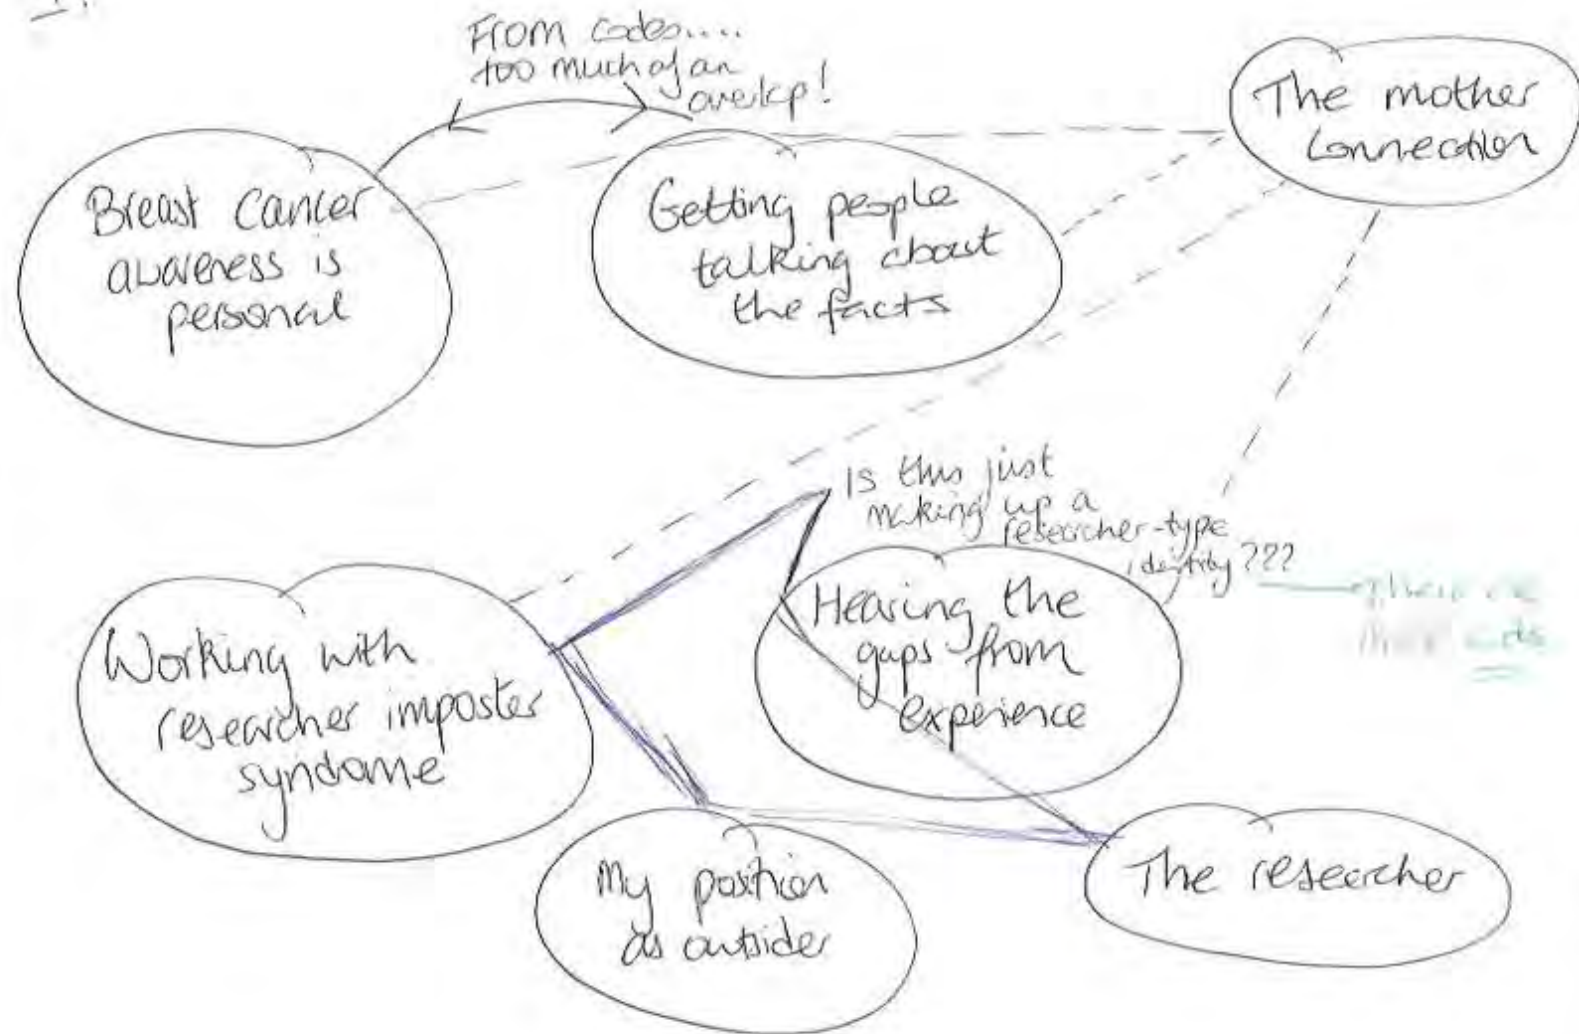 From codes....
too much of an
overlap!
The mother
connection
Breast Cancer
awareness is
personal
Getting people
talking about
the facts
Is this just
making up a
researcher-type
identity???
Working with
researcher imposter
syndrome
Hearing the
gaps from
experience
My position
as outsider
The researcher